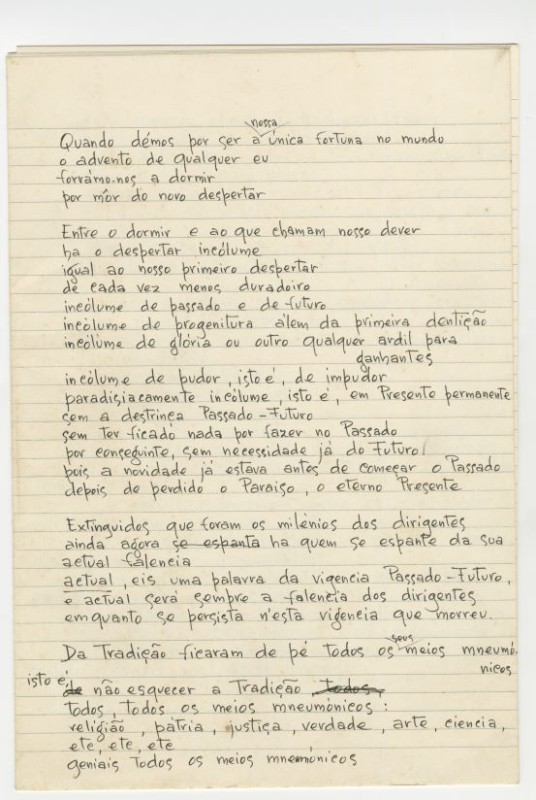 Quando démos por ser a nossa única fortuna no mundo
o advento de qualquer eu
forrámo-nos a dormir
por mór do novo despertar
Entre o dormir e ao que chamam nosso dever
ha o despertar incólume
igual ao nosso primeiro despertar
de cada vez menos duradoiro
incólume de passado e de futuro
incólume de progenitura àlem da primeira dentição
incólume de glória ou outro qualquer ardil para
ganhantes
incólume de pudor, isto é, de impudor
paradisiacamente incólume, isto é, em Presente permanente
sem a destrinça Passado-Futuro
sem ter ficado nada por fazer no Passado
por conseguinte, sem necessidade já do Futuro
pois a novidade já estava antes de começar o Passado
depois de perdido o Paraiso, o eterno Presente
Extinguidos que foram os milénios dos dirigentes
ainda agora se espanta ha quem se espante da sua
actual falencia
actual, eis uma palavra da vigencia Passado-Futuro,
e actual será sempre a falencia dos dirigentes
emquanto se persista n'esta vigencia que morreu.
Da Tradição ficaram de pé todos os seus meios mneumó-
nicos
isto é,
de não esquecer a Tradição todos,
todos, todos os meios mneumónicos:
religião, pátria, justiça, verdade, arte, ciencia,
etc, etc, etc
geniais todos os meios mnemónicos